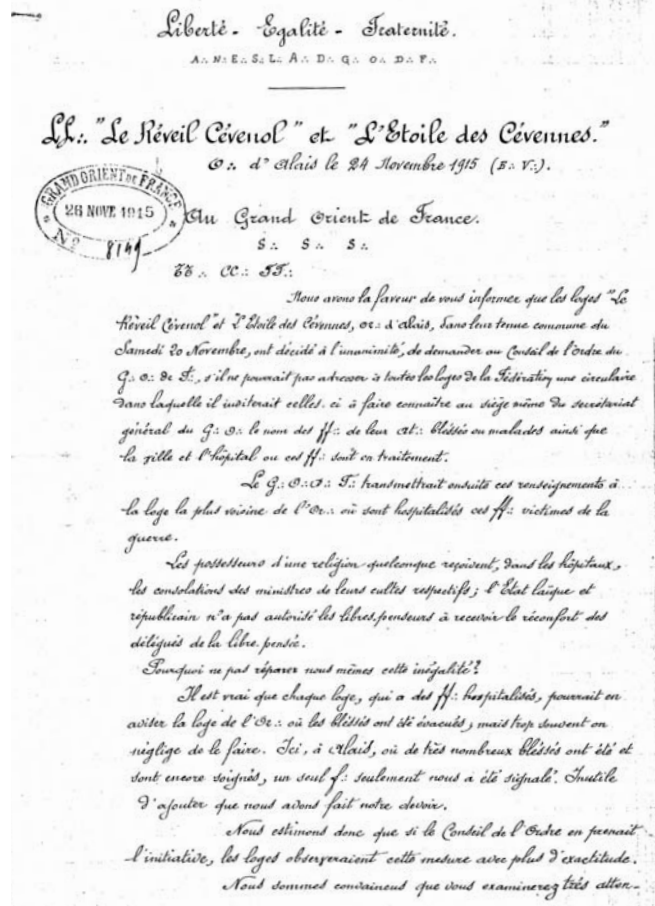 Liberté - Egalité - Fraternité.
A∴ N∴ E∴ S∴ L∴ A∴ D∴ G∴ O∴ D∴ F∴
LL∴ "Le Réveil Cévenol" et "L'Etoile des Cévennes."
O∴ d'Alais le 24 Novembre 1915 (E∴ V∴).
GRAND ORIENT DE FRANCE
26 NOVE 1915
N° 8149
Au Grand Orient de France.
S∴ S∴ S∴
TT∴ CC∴ FF∴
Nous avons la faveur de vous informer que les loges "Le
Réveil Cévenol" et L'Etoile des Cévennes, or∴ d'Alais, dans leur tenue commune du
Samedi 20 Novembre, ont décidé à l'unanimité, de demander au Conseil de l'Ordre du
G∴ O∴ de F∴, s'il ne pourrait pas adresser à toutes les loges de la Fédération une circulaire
dans laquelle il inviterait celles-ci à faire connaître au siège même du secrétariat
général du G∴ O∴ le nom des ff∴ de leur at∴ bléssés ou malades ainsi que
la ville et l'hôpital ou ces ff∴ sont en traitement.
Le G∴ O∴ D∴ F∴ transmettrait ensuite ces renseignements à
la loge la plus voisine de l'Or∴ où sont hospitalisés ces ff∴ victimes de la
guerre.
Les possesseurs d'une religion quelconque reçoivent, dans les hôpitaux,
les consolations des ministres de leurs cultes respectifs; l'Etat laïque et
républicain n'a pas autorisé les libres-penseurs à recevoir le réconfort des
délégués de la libre-pensée.
Pourquoi ne pas réparer nous mêmes cette inégalité?
Il est vrai que chaque loge, qui a des ff∴ hospitalisés, pourrait en
aviser la loge de l'Or∴ où les bléssés ont été évacués; mais trop souvent on
néglige de le faire. Ici, à Alais, où de très nombreux bléssés ont été et
sont encore soignés, un seul f∴ seulement nous a été signalé. Inutile
d'ajouter que nous avons fait notre devoir.
Nous estimons donc que si le Conseil de l'Ordre en prenait
l'initiative, les loges observeraient cette mesure avec plus d'exactitude.
Nous sommes convaincus que vous examinerez très atten-